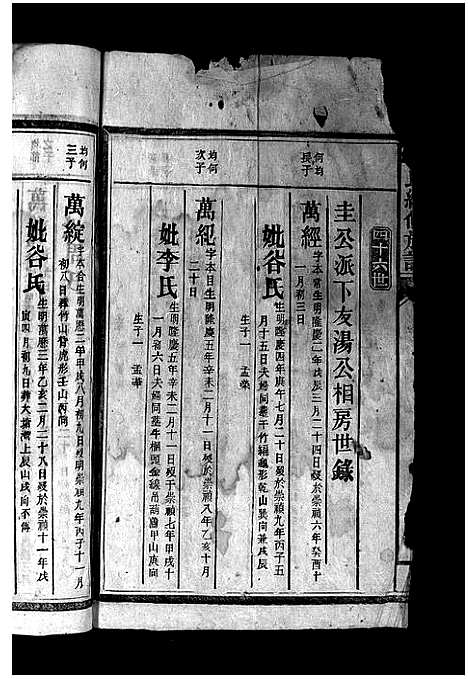 四十六世
圭公派下友湯公相房世錄
何均
長子
萬經 字本常生明隆慶二年戊辰三月二十四日歿於崇禎六年癸酉十
一月初三日
妣谷氏 生明隆慶四年庚午七月二十日歿於崇禎九年丙子五
月十五日夫婦同墓于竹山巽向兼戌辰
生子一 孟榮
均何
次子
萬紀 字本目生明隆慶五年辛未二月十一日歿于崇禎八年乙亥十月
二十日
妣李氏 生明隆慶五年辛未二月十一日歿于崇禎七年甲戌十
一月初六日夫婦同墓牛欄頭金線吊葫蘆甲山庚向
生子一 孟華
均何
三子
萬綻 字本合生明萬歷二年甲戌八月初九日歿明崇禎九年丙子十一月
初八日葬竹山背虎形壬山丙向
妣谷氏 生明萬歷三年乙亥二月二十八日歿於崇禎十一年戊
寅四月初九日葬大塘灣上辰山戌向不傳